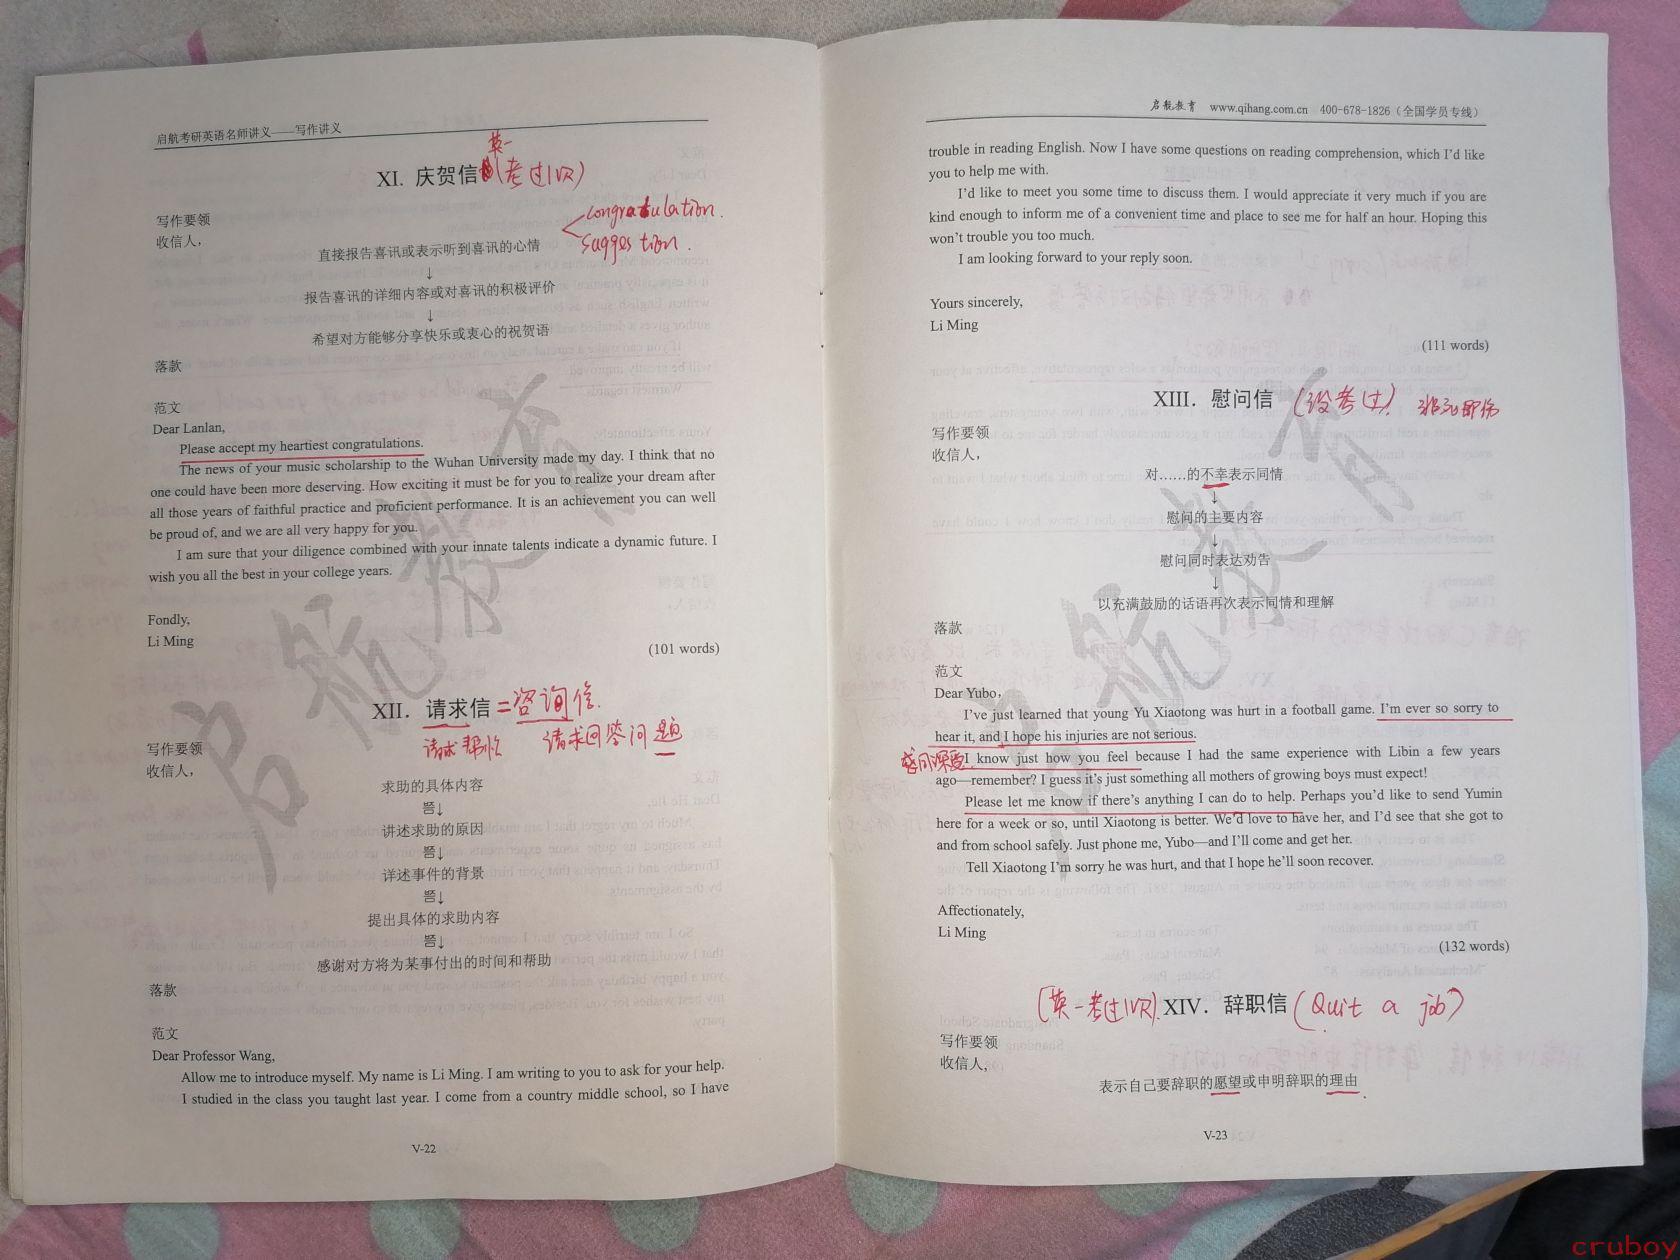 启航考研英语名师讲义——写作讲义
XI. 庆贺信 英一 (考过1次)
写作要领
收信人,
congratulation.
suggestion.
直接报告喜讯或表示听到喜讯的心情
↓
报告喜讯的详细内容或对喜讯的积极评价
↓
希望对方能够分享快乐或衷心的祝贺语
落款
范文
Dear Lanlan,
Please accept my heartiest congratulations.
The news of your music scholarship to the Wuhan University made my day. I think that no
one could have been more deserving. How exciting it must be for you to realize your dream after
all those years of faithful practice and proficient performance. It is an achievement you can well
be proud of, and we are all very happy for you.
I am sure that your diligence combined with your innate talents indicate a dynamic future. I
wish you all the best in your college years.
Fondly,
Li Ming
(101 words)
XII. 请求信 =咨询信.
请求帮忙 请求回答问题
写作要领
收信人,
求助的具体内容
답↓
讲述求助的原因
답↓
详述事件的背景
답↓
提出具体的求助内容
답↓
感谢对方将为某事付出的时间和帮助
落款
范文
Dear Professor Wang,
Allow me to introduce myself. My name is Li Ming. I am writing to you to ask for your help.
I studied in the class you taught last year. I come from a country middle school, so I have
V-22
启航教育 www.qihang.com.cn 400-678-1826（全国学员专线）
trouble in reading English. Now I have some questions on reading comprehension, which I'd like
you to help me with.
I'd like to meet you some time to discuss them. I would appreciate it very much if you are
kind enough to inform me of a convenient time and place to see me for half an hour. Hoping this
won't trouble you too much.
I am looking forward to your reply soon.
Yours sincerely,
Li Ming
(111 words)
XIII. 慰问信 (没考过) 非死即伤
写作要领
收信人,
对……的不幸表示同情
↓
慰问的主要内容
↓
慰问同时表达劝告
↓
以充满鼓励的话语再次表示同情和理解
落款
范文
Dear Yubo,
I've just learned that young Yu Xiaotong was hurt in a football game. I'm ever so sorry to
hear it, and I hope his injuries are not serious.
感同深受 I know just how you feel because I had the same experience with Libin a few years
ago—remember? I guess it's just something all mothers of growing boys must expect!
Please let me know if there's anything I can do to help. Perhaps you'd like to send Yumin
here for a week or so, until Xiaotong is better. We'd love to have her, and I'd see that she got to
and from school safely. Just phone me, Yubo—and I'll come and get her.
Tell Xiaotong I'm sorry he was hurt, and that I hope he'll soon recover.
Affectionately,
Li Ming
(132 words)
(英一考过1次). XIV. 辞职信 (Quit a job)
写作要领
收信人,
表示自己要辞职的愿望或申明辞职的理由
V-23
启航教育
启航教育
cruboy